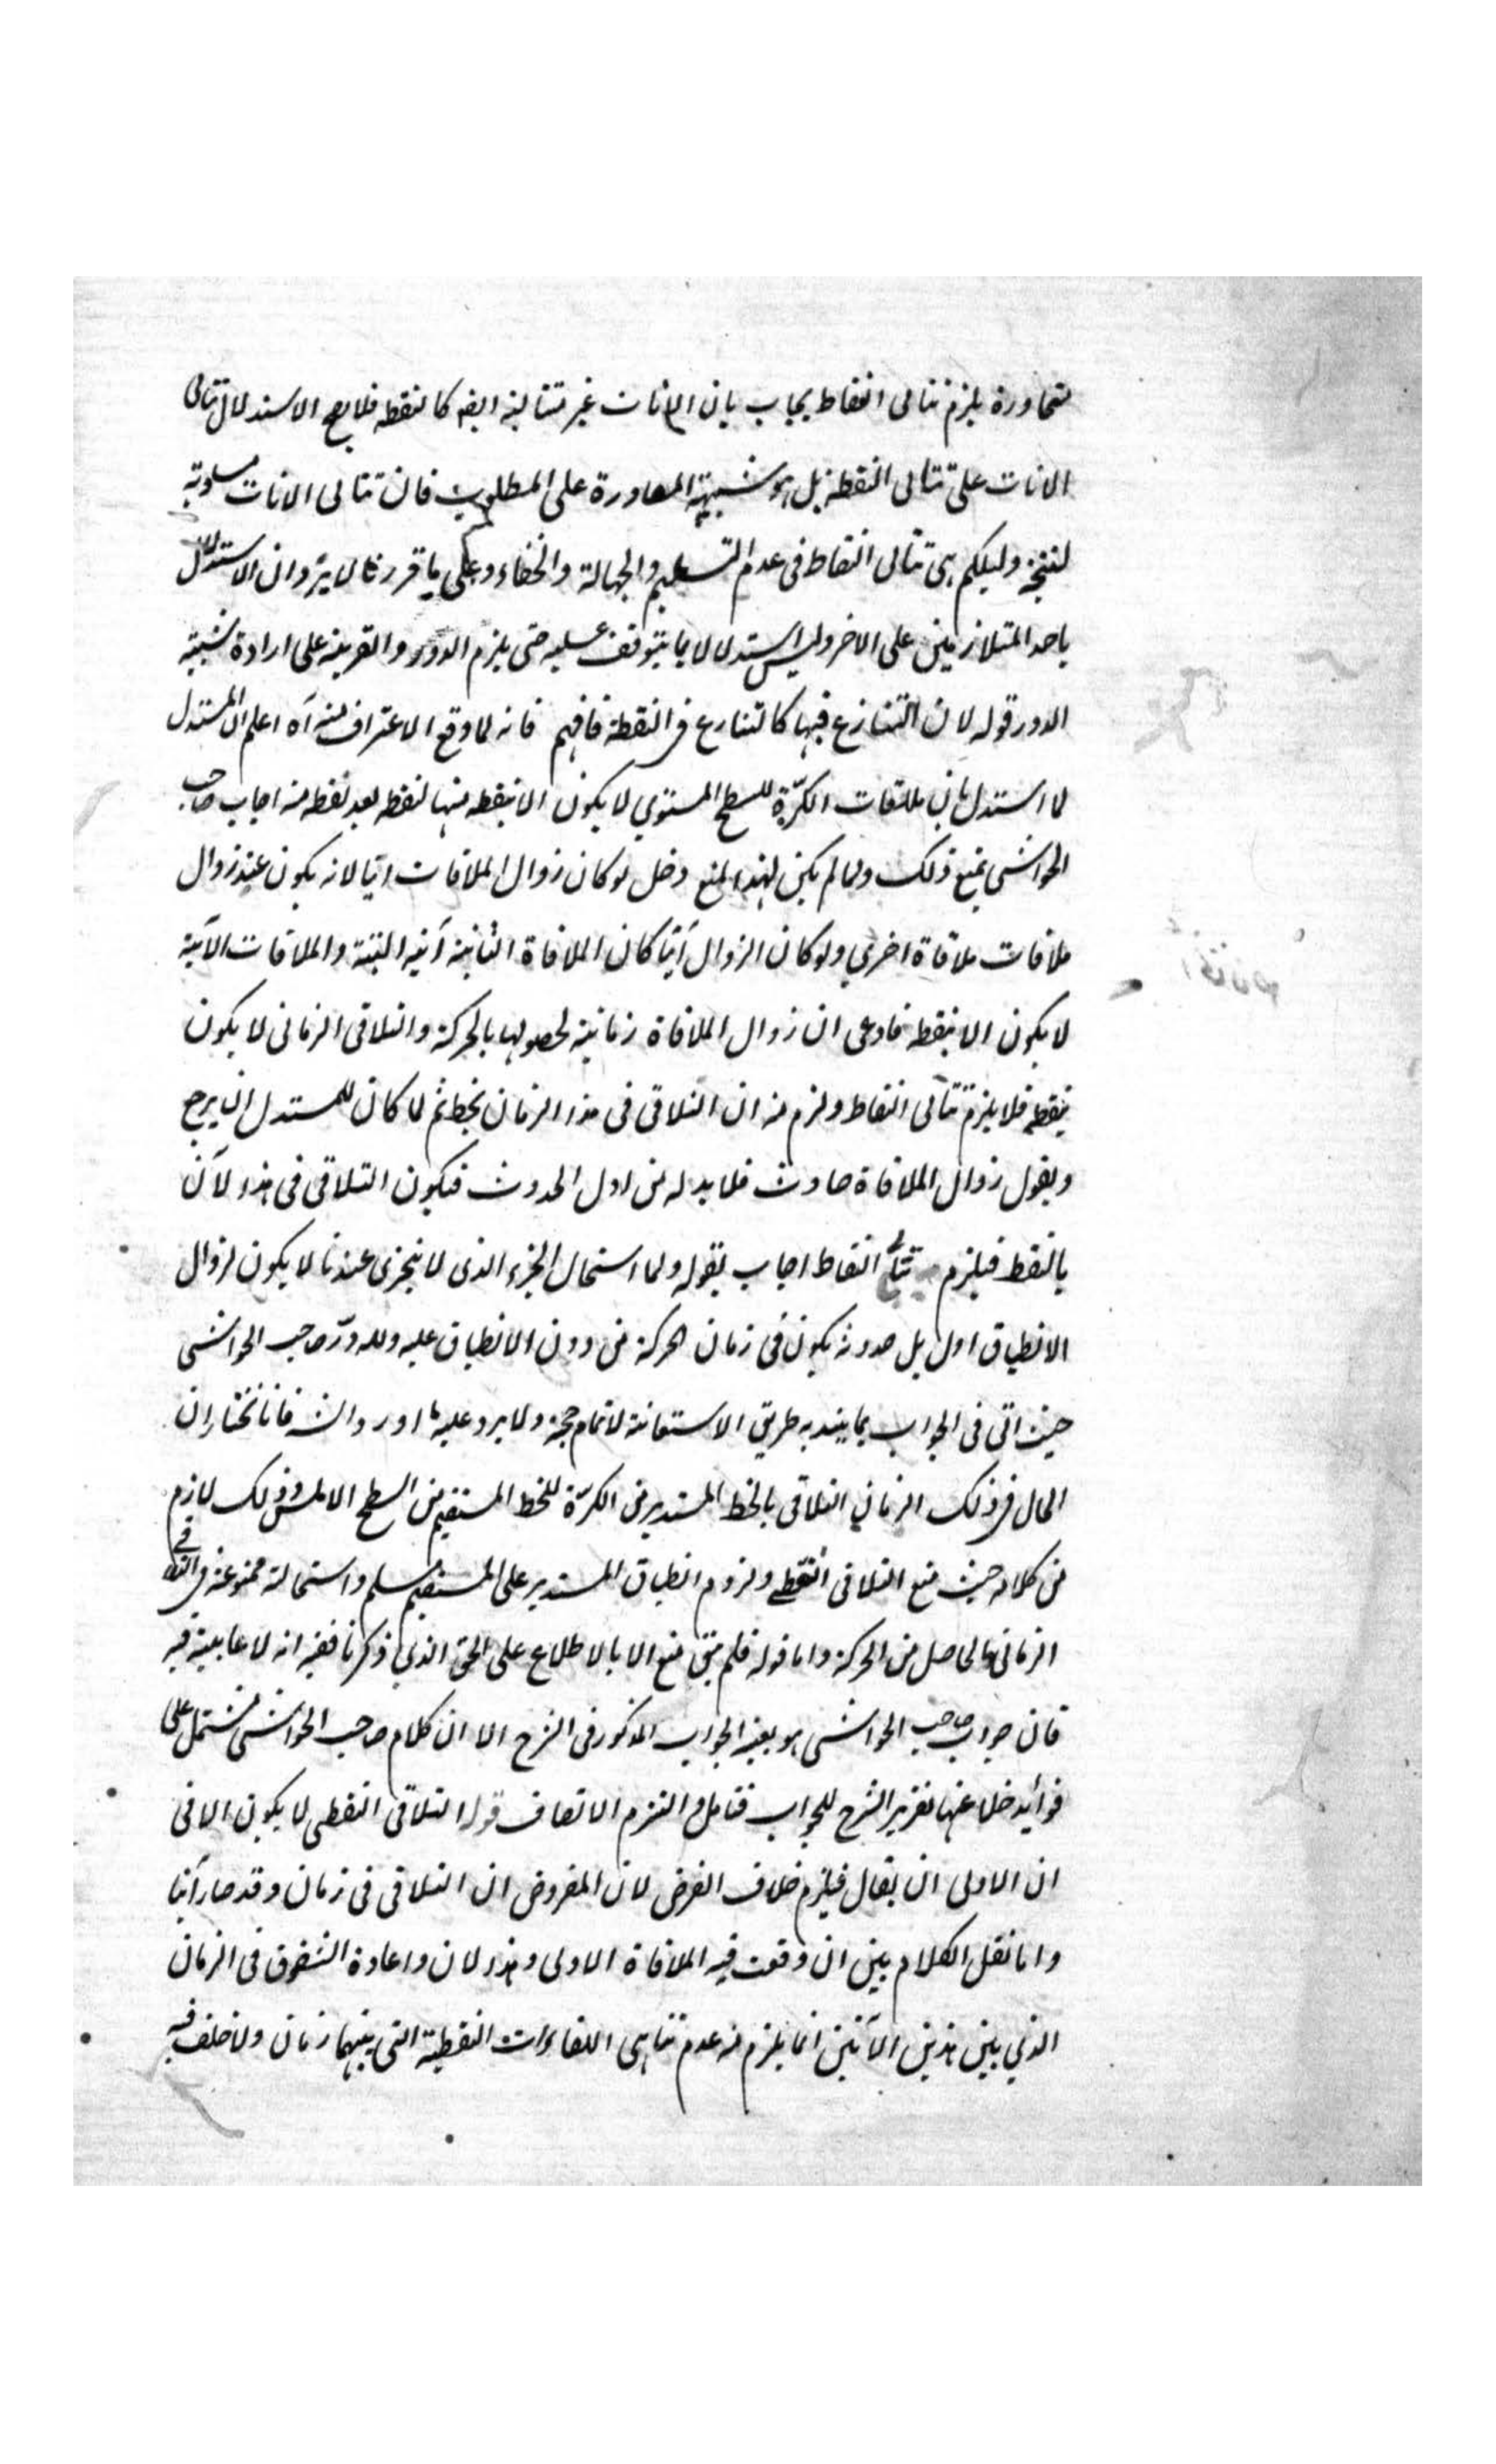 متجاورة يلزم تتالى النقاط يجاب بان الانات غير متتالية ايضا كالنقطه فلا يصح الاستدلال بتتالى
الانات على تتالى النقطه بل هو شبيهة المصادرة على المطلوب فان تتالى الانات مساوية
لنتيجة دليلكم هى تتالى النقاط فى عدم التسليم والجهالة والخفاء وعلى ما قررنا لا يرد ان الاستدلال
باحد المتلازمين على الاخر وليس استدلالا بما يتوقف عليه حتى يلزم الدور والقرينة على ارادة شبيهة
الدور قوله لان التنازع فيها كالتنازع فى النقطة فافهم فانه لما وقع الاعتراف منه آه اعلم ان المستدل
لما استدل بان ملاقات الكرة للسطح المستوي لا يكون الا بنقطه منها لنقطه بعد نقطه منه اجاب صاحب
الحواشى بمنع ذلك ولما لم يكن لهذا المنع دخل لو كان زوال الملاقات انيا لانه يكون عند زوال
ملاقات ملاقاة اخري ولو كان الزوال آنيا كان الملاقاة الثانية آنيه البتة والملاقات الآنية
لا يكون الا بنقطه فادعى ان زوال الملاقاة زمانية لحصولها بالحركة والتلاقى الزمانى لا يكون
بنقطه فلا يلزم تتالى النقاط ولزم منه ان التلاقى فى هذا الزمان بخط ثم لما كان للمستدل ان يرجع
ويقول زوال الملاقاة حادث فلا بد له من اول الحدوث فيكون التلاقى فى هذا الآن
بالنقط فيلزم تتالى النقاط اجاب بقوله ولما استحال الجزء الذى لا يتجزى عندنا لا يكون لزوال
الانطباق اول بل حدوثه يكون فى زمان الحركة من دون الانطباق عليه ولله در صاحب الحواشى
حيث اتى فى الجواب بما طريق الاستعانة لاتمام حجة ولا يرد عليه ما اورد فانا نختار ان
الحال فى ذلك الزمان التلاقى بالخط المستدير من الكرة للخط المستقيم من السطح الاملس وذلك لازم
من كلامه حيث منع التلاقى النقطى ولزوم انطباق المستدير على المستقيم مسلم واستحالة ممنوعة فى
الزمانى الحاصل من الحركة واما قوله فلم يبق منع الا بالاطلاع على الحق الذي ذكرنا ففيه انه لا فيه
فان جواب صاحب الحواشى هو بعينه الجواب المذكور فى الشرح الا ان كلام صاحب الحواشى مشتمل على
فوائد خلا عنها تقرير الشرح للجواب فتامل والتزم الانصاف قوله التلاقى النقطى لا يكون الا فى
ان الاولى ان يقال فيلزم خلاف الفرض لان المفروض ان التلاقى فى زمان وقد صار آنيا
واما نقل الكلام بين ان وقعت فيه الملاقاة الاولى وهذا الان واعادة الشقوق فى الزمان
الذي بين هذين الآنين انما يلزم منه عدم تناهى اللقاءات النقطية التى بينهما زمان ولا خلف فيه